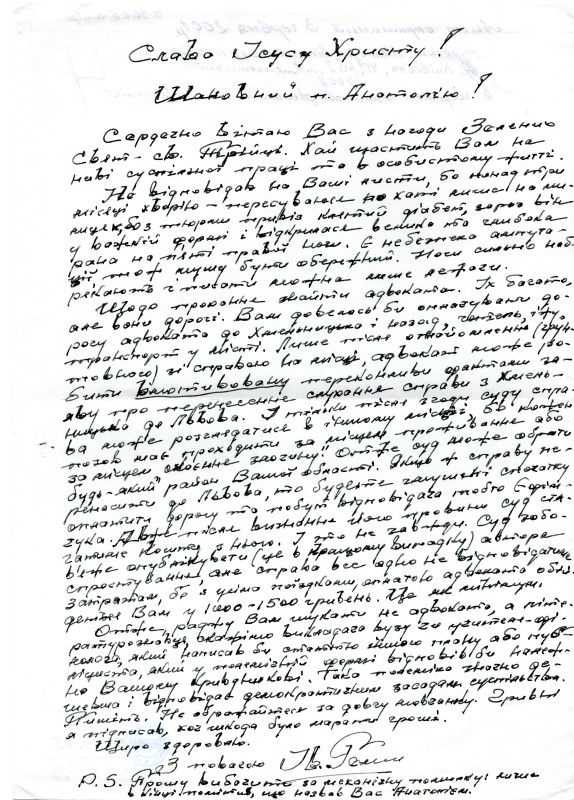 Слава Ісусу Христу!
Шановний п. Анатолію!
Сердечно вітаю Вас з нагоди Зелених
Свят - св. Трійці. Хай щастить Вам на
ниві суспільної праці та в особистому житті.
Не відповідаю на Ваші листи, бо понад три
місяці хворію - пересуваюся по хаті лише на ми-
лицях, бо з тюрми привіз клятий діабет, зараз він
у важкій формі і відкрилася велика та глибока
рана на п'яті правої ноги. Є небезпека ампута-
ції тож мушу бути обережний. Ноги сильно наб-
рякають і писати можна лише лежачи.
Щодо прохання знайти адвоката. Їх багато,
але вони дорогі. Вам довелось би оплачувати до-
рогу адвоката до Хмельницька і назад, готель, їжу,
транспорт у місті. Лише після ознайомлення (грун-
товного) зі справою на місці, адвокат може зро-
бити вмотивовану переконливими фактами за-
яву про перенесення слухання справи з Хмель-
ницька до Львова. І тільки після згоди суду спра-
ва може розглядатися в іншому місці, бо кожен
позов має проходити за місцем проживання або
за місцем "скоєння злочину". Отже суд може обрати
будь-який район Вашої області. Якщо ж справу пе-
ренесити до Львова, то будете змушені спочатку
оплатити дорогу та побут відповідача тобто
чука. А вже після визнання його провини суд стя-
гатиме кошти з нього. І то не завжди. Суд зобо-
в'яже опублікувати (це в кращому випадку) автора
спростування, але справа все одно не відповідатиме
затратам, бо з усіма поїздками, оплатою адвоката обій-
деться Вам у 1000-1500 гривень. Це як мінімум.
Отже, раджу Вам шукати не адвоката, а літе-
ратурознавця, скажімо викладача вузу чи учителя-філо-
лога, який написав би статтю іншого плану або пуб-
ліциста, який у полемічній формі відповів би належ-
но Вашому кривдникові. Така полеміка значно де-
шевша і відповідає демократичним засадам суспільства.
Пишіть. Не ображайтеся за довгу мовчанку. Гривні
я підписав, хоч шкода було марати гроші.
Щиро здоровлю.
З повагою
P.S. Прошу вибачити за механічну помилку: лише
в кінці помітив, що назвав Вас Анатолієм.